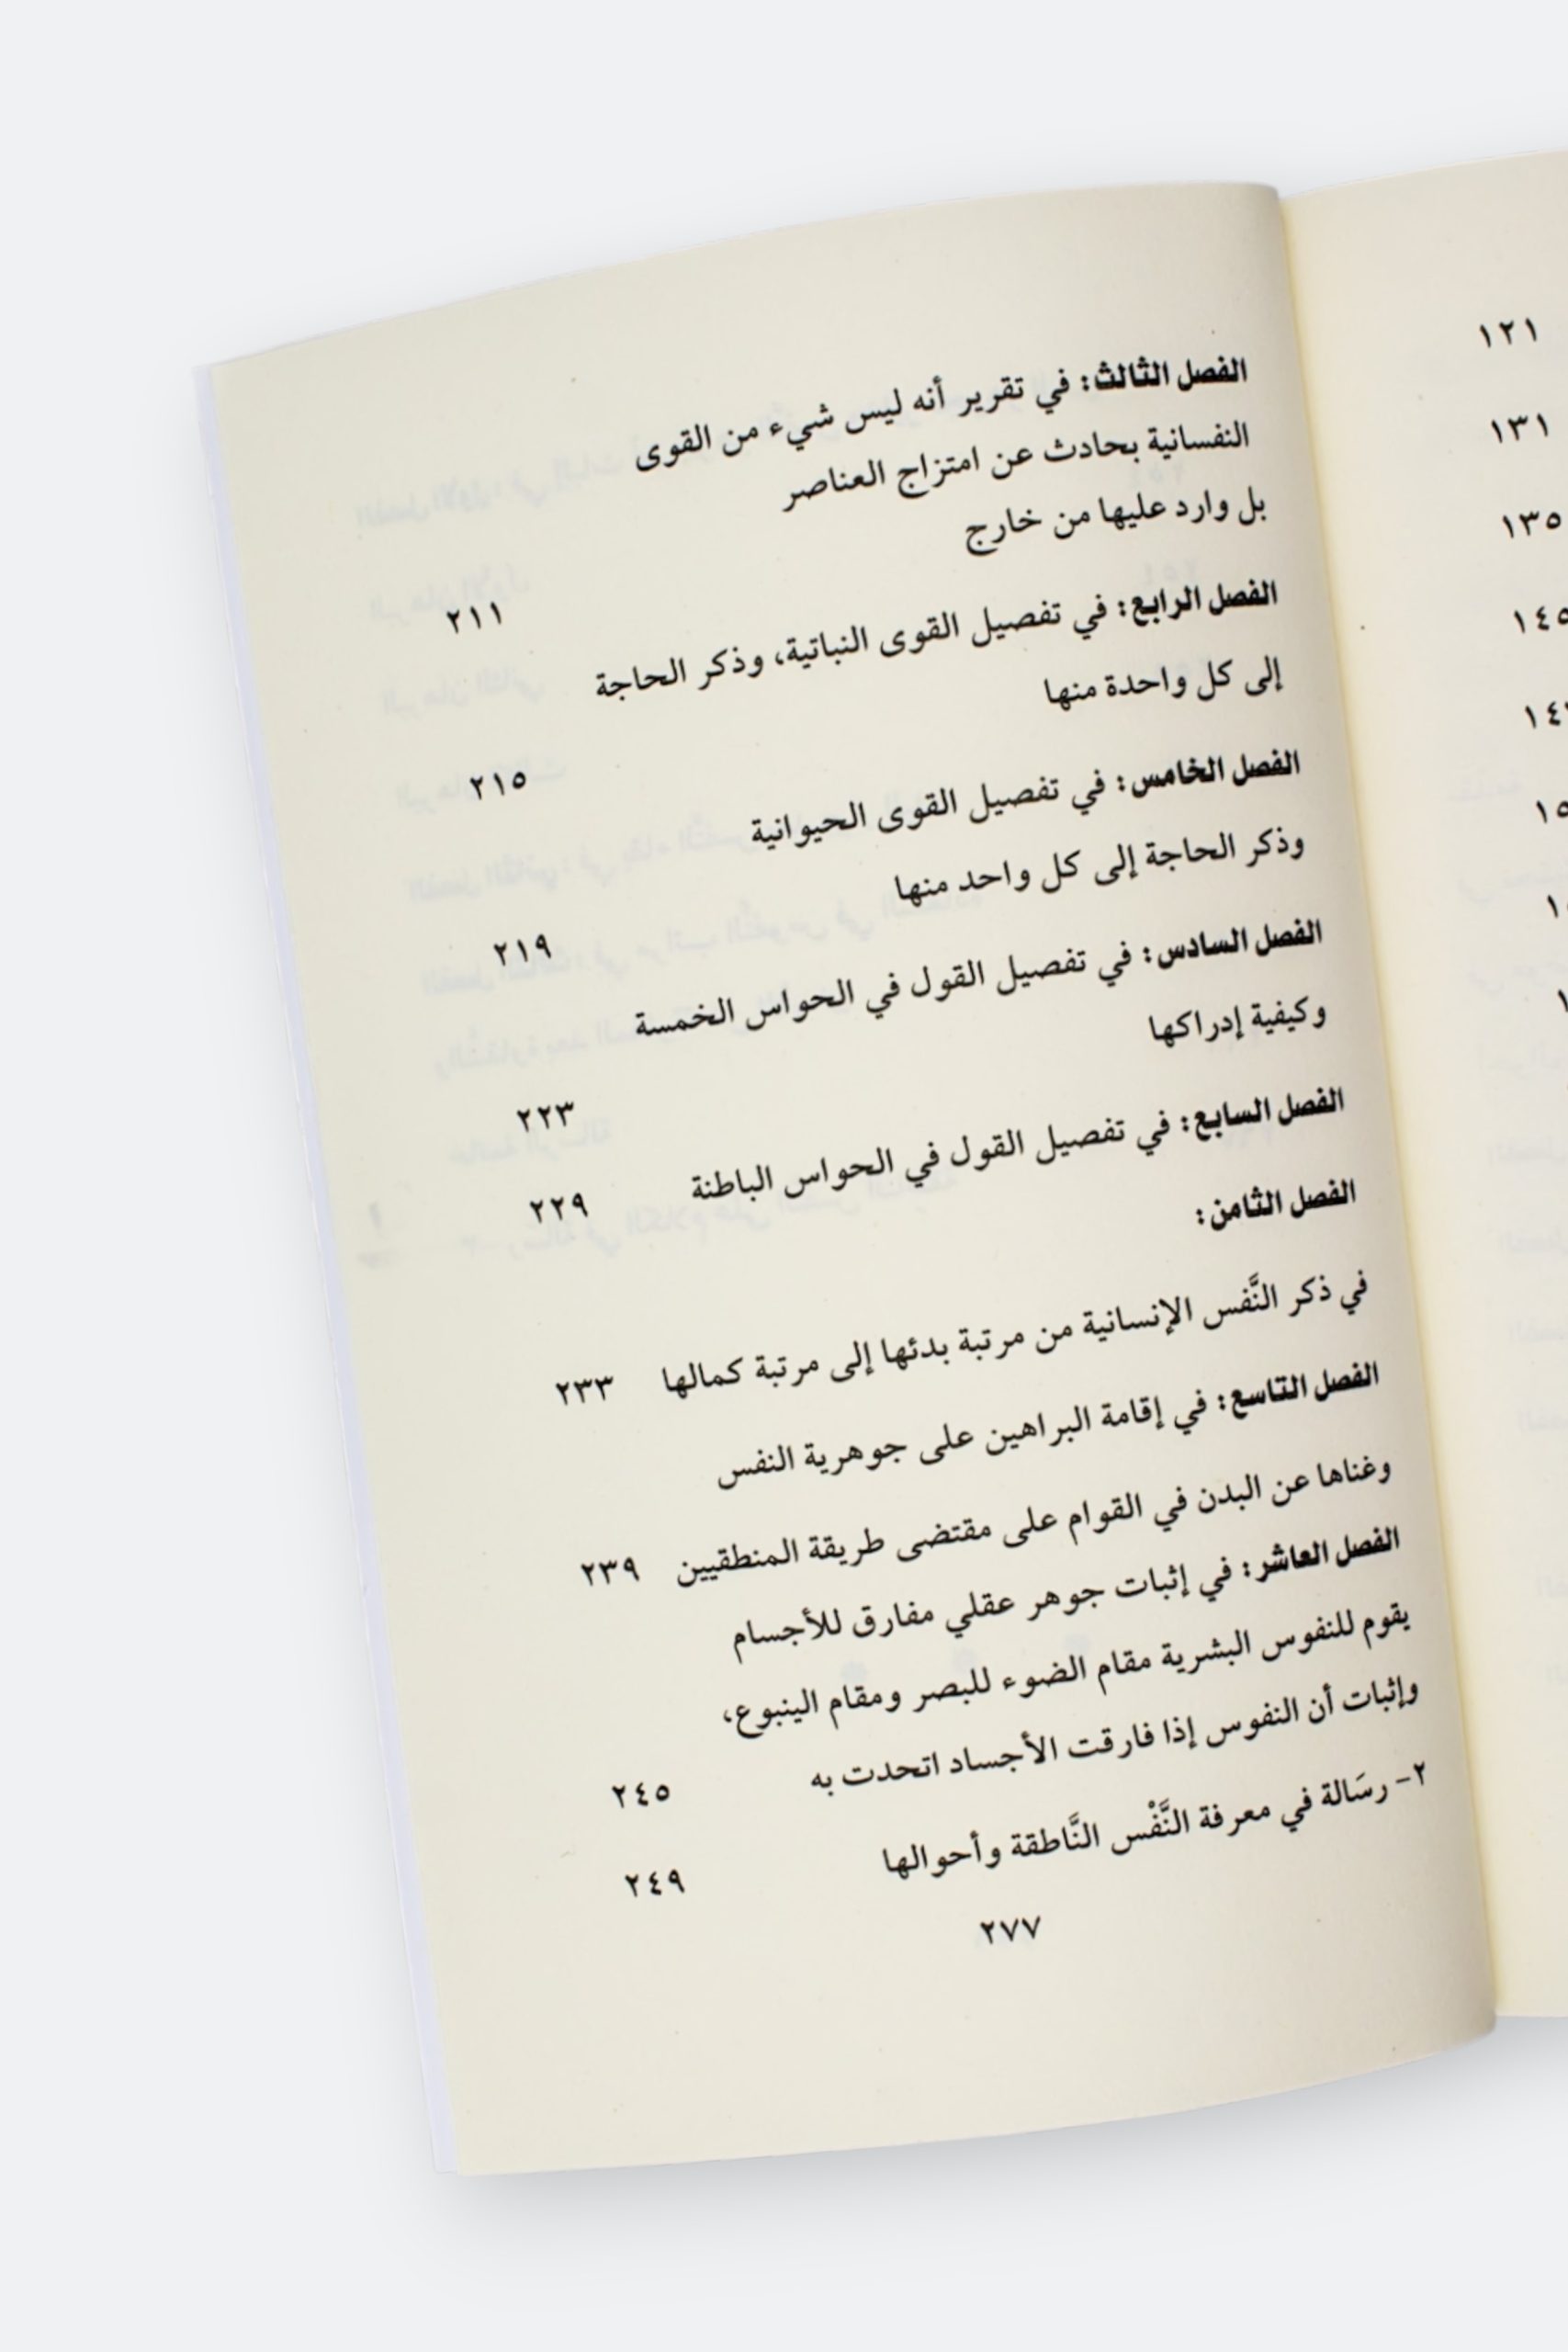 الفصل الثالث: في تقرير أنه ليس شيء من القوى
النفسانية بحادث عن امتزاج العناصر
بل وارد عليها من خارج ٢١١
الفصل الرابع: في تفصيل القوى النباتية، وذكر الحاجة
إلى كل واحدة منها ٢١٥
الفصل الخامس: في تفصيل القوى الحيوانية
وذكر الحاجة إلى كل واحد منها ٢١٩
الفصل السادس: في تفصيل القول في الحواس الخمسة
وكيفية إدراكها ٢٢٣
الفصل السابع: في تفصيل القول في الحواس الباطنة ٢٢٩
الفصل الثامن:
في ذكر النَّفس الإنسانية من مرتبة بدئها إلى مرتبة كمالها ٢٣٣
الفصل التاسع: في إقامة البراهين على جوهرية النفس
وغناها عن البدن في القوام على مقتضى طريقة المنطقيين ٢٣٩
الفصل العاشر: في إثبات جوهر عقلي مفارق للأجسام
يقوم للنفوس البشرية مقام الضوء للبصر ومقام الينبوع،
وإثبات أن النفوس إذا فارقت الأجساد اتحدت به ٢٤٥
٢- رسَالة في معرفة النَّفْس النَّاطقة وأحوالها ٢٤٩
٢٧٧
١٢١
١٣١
١٣٥
١٤٥